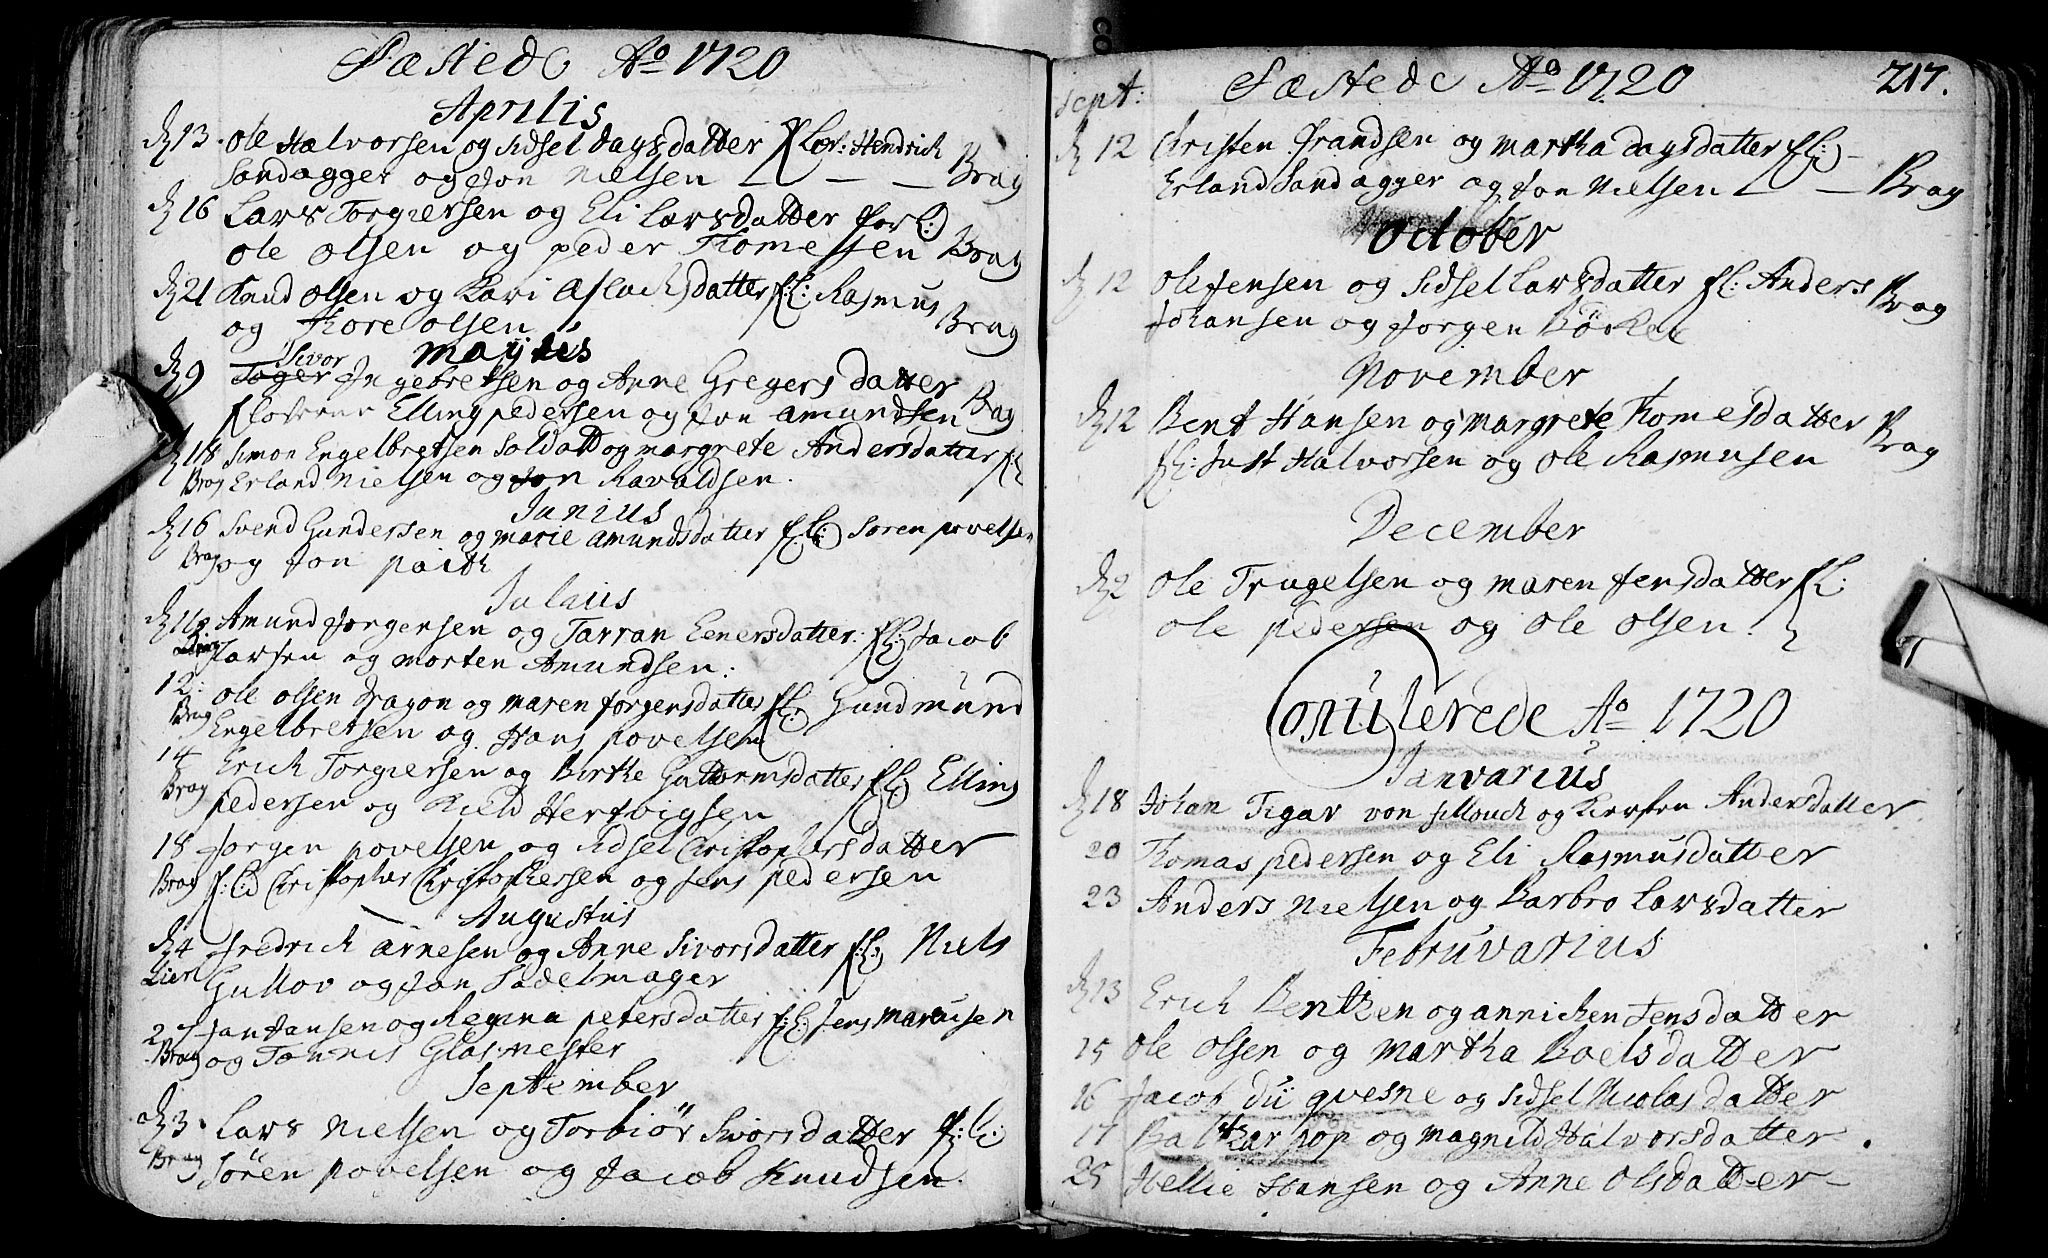 Fæstede Ao 1720
Aprilis
d 13. Ole Halvorsen og Sidsel dagsdatter f Lov: Hendrich
Sandagger og Jon Nielsen Brag
d 16 Lars Torgiersen og Eli Larsdatter for L:
Ole Olsen og peder Thomessen Brag
d 21 Knud Olsen og Kari Aslachsdatter f:L: Rasmus
og Thore Olsen Brag
Majus
Sivor
d 9 Toger Ingebretsen og Anne Gregersdatter
f Loverne Elling pedersen og Jon Amundsen Brag
d 18 Simon Engelbretsen Soldatt og margrete Andersdatter f:L
Brag Erland Nielsen og Jon Ravaldsen.
Junius
d 16 Svend Gundersen og marie Amundsdatter f:L: Sören povelsen
Brag og Jon paith
Julius
d Amund Jorgensen og Tarran Eenersdatter f:L: Jacob
Larsen og morten Amundsen.
12. Ole Olsen dragon og maren Jorgensdatter f:L: Gundmund
Brag Engelbretsen og Hans povelsen
14 Erich Torgiersen og Birthe Guttormsdatter f:L: Elling
Brag pedersen og Kield Hertvigsen
18 Jorgen povelsen og Sidsel Christophersdatter
Brag f:L: Christopher Christophersen og Jens pedersen
Augustus
d 4 fredrich Arnesen og Anne Sivorsdatter f:L: Niels
Lier Gullov og Jon Sadelmager
27 Jan Jansen og Regina petersdatter f:L: Jens
Brag og Tønnis Glasmester
September
d 3. Lars Nielsen og Torbiör Sivorsdatter f:L:
Brag Sören povelsen og Jacob Knudsen.
Fæstede Ao 1720 217.
Sept:
d 12 Christen frandsen og martha dagsdatter f:L:
Erland Sandagger og Jon Nielsen Brag
October
d 12 Ole Jensen og Sidsel Larsdatter f:L: Anders
Johansen og Jorgen Brag
November
d 12 Bent Hansen og margrete Thomesdatter
f:L: Just Halvorsen og Ole Rasmusen Brag
December
d 2 Ole Trugelsen og maren Jensdatter f:L:
Ole pedersen og Ole Olsen.
Copulerede Ao 1720
Janvarius
d 18 Johan Tigar von og Kiersten Andersdatter
20 Thomas pedersen og Eli Rasmusdatter
23 Anders Nielsen og Barbro Larsdatter
Februvarius
d 13 Erich Bentzen og annichen Jensdatter
15 Ole Olsen og Martha Roelsdatter
16 Jacob du qvesne og Sidsel Nicolasdatter
17 Baltzar pop og magnild Halvorsdatter.
25 Hellie Hansen og Anne Olsdatter